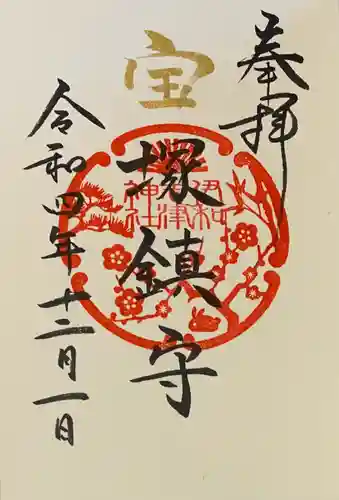 奉拝
宝塚鎮守
伊和
志津
神社
令和四年十二月一日